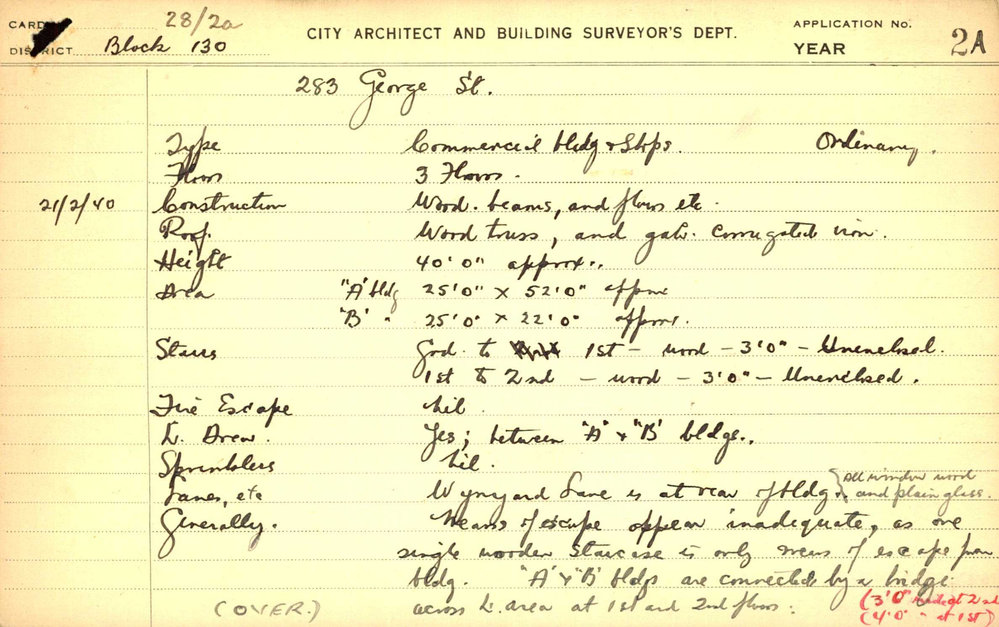 CARD 28/2a CITY ARCHITECT AND BUILDING SURVEYOR'S DEPT. APPLICATION No.
DISTRICT Block 130 YEAR 2A
283 George St.
Type Commercial bldg & Shops. Ordinary.
Floors 3 Floors.
21/2/40 Construction Wood. beams, and floors etc.
Roof. Wood truss, and galv. corrugated iron.
Height 40'0" approx.
Area "A" bldg 25'0" x 52'0" approx
"B" " 25'0" x 22'0" approx.
Stairs Grd. to 1st - wood - 3'0" - Unenclosed.
1st to 2nd - wood - 3'0" - Unenclosed.
Fire Escape Nil.
L. Area. Yes; between "A" & "B" bldgs.
Sprinklers Nil.
Lanes, etc Wynyard Lane is at rear of bldg. All window wood
and plain glass.
Generally. Means of escape appear inadequate, as one
single wooden staircase is only means of escape from
bldg. "A" & "B" bldgs are connected by a bridge
across L. area at 1st and 2nd floors. (3'0" wide at 2nd
(OVER.) (4'0" " at 1st)